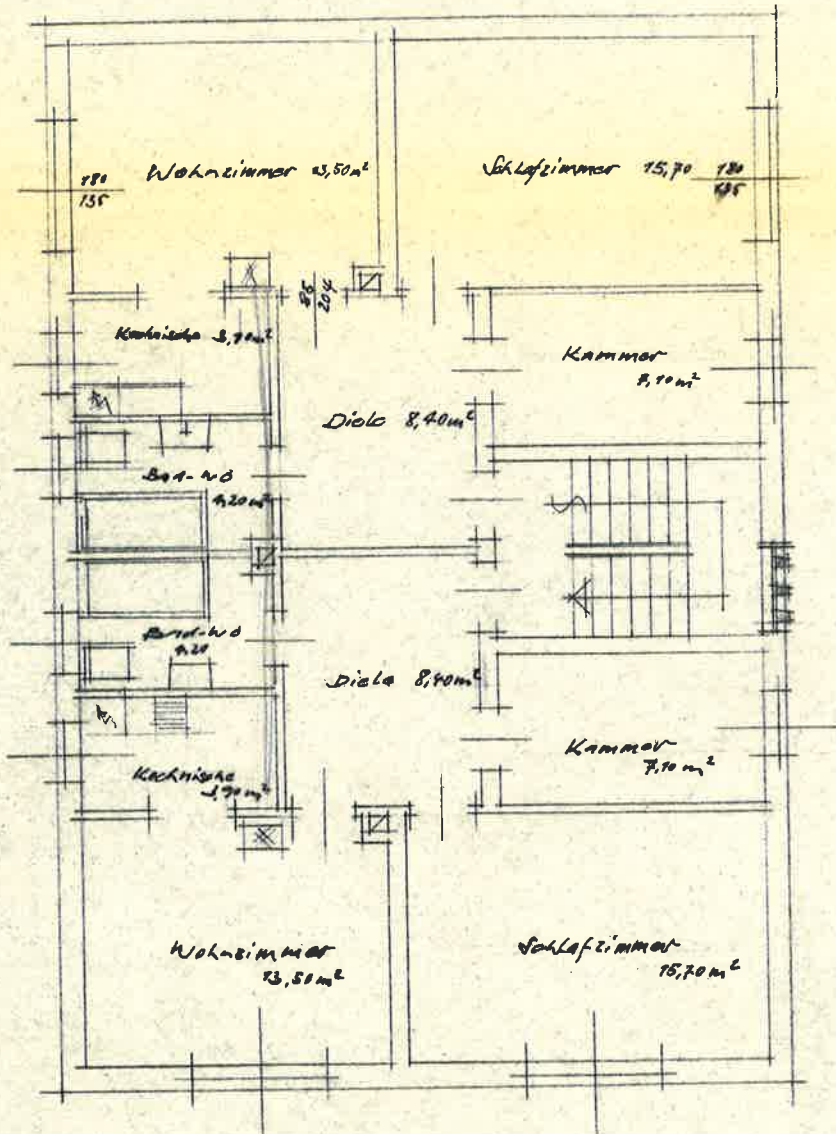 Wohnzimmer 13,50 m²
180
135
Schlafzimmer 15,70
180
135
86
204
Kochnische 3,90 m²
Kammer
7,10 m²
Diele 8,40 m²
Bad-WC
4,20 m²
Bad-WC
4,20
Diele 8,40 m²
Kammer
7,10 m²
Kochnische
3,90 m²
Wohnzimmer
13,50 m²
Schlafzimmer
15,70 m²